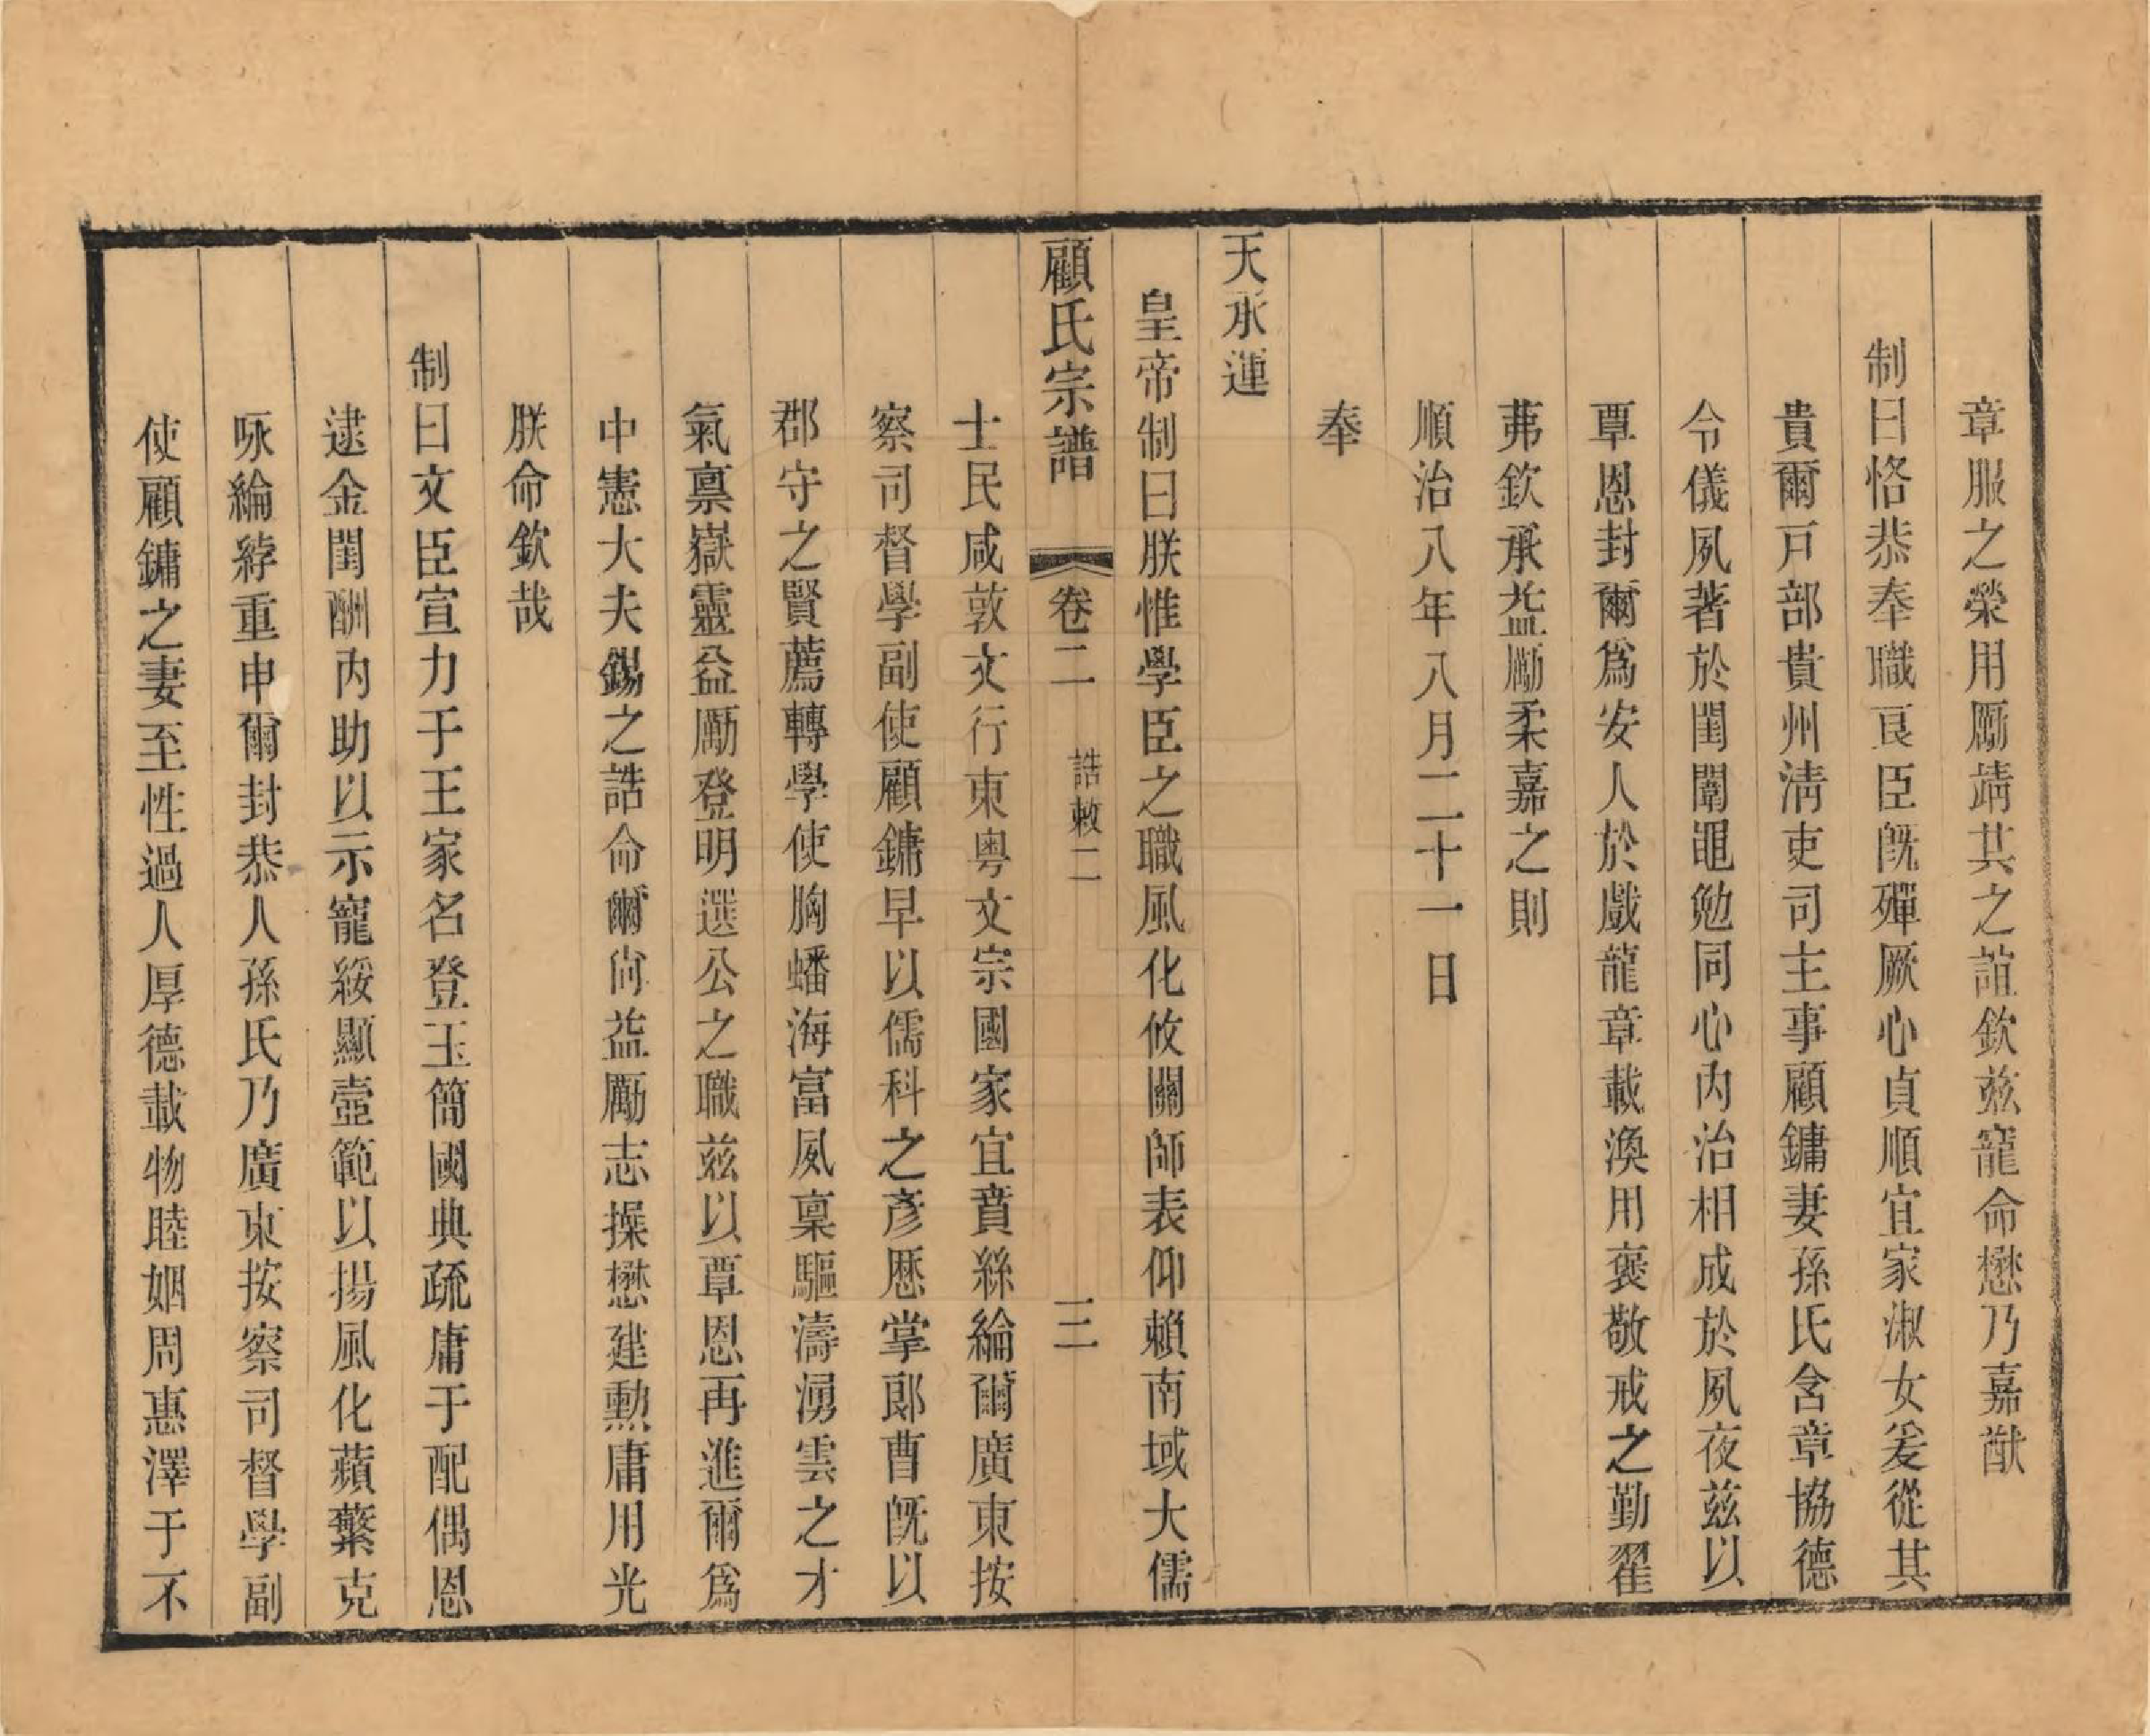 章服之榮用勵靖共之誼欽兹寵命懋乃嘉猷
制曰恪恭奉職良臣既殫厥心貞順宜家淑女爰從其
貴爾戸部貴州淸吏司主事顧鏞妻孫氏含章協德
令儀夙著於閨闈黽勉同心内治相成於夙夜兹以
覃恩封爾爲安人於戲龍章載渙用褒敬戒之勤翟
茀欽承益勵柔嘉之則
順治八年八月二十一日
奉
天承運
皇帝制曰朕惟學臣之職風化攸關師表仰賴南域大儒
顧氏宗譜 卷二 誥敕二 三
士民咸敦文行東粤文宗國家宜賁絲綸爾廣東按
察司督學副使顧鏞早以儒科之彥歷掌郎曹既以
郡守之賢薦轉學使胸蟠海富夙稟驅濤湧雲之才
氣稟嶽靈益勵登明選公之職兹以覃恩再進爾爲
中憲大夫錫之誥命爾尙益勵志操懋建勳庸用光
朕命欽哉
制曰文臣宣力于王家名登玉簡國典疏庸于配偶恩
逮金閨酬内助以示寵綏顯壼範以揚風化蘋蘩克
咏綸綍重申爾封恭人孫氏乃廣東按察司督學副
使顧鏞之妻至性過人厚德載物睦姻周惠澤于不